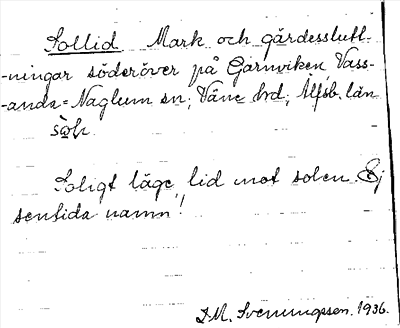 Sollid Mark och gärdesslutt-
-ningar söderöver på Gärnviken, Vass-
-anda-Naglum sn; Väne hrd, Älfsb. län
Soligt läge, lid mot solen. Ej
sentida namn!
D.M. Sveningsson. 1936.